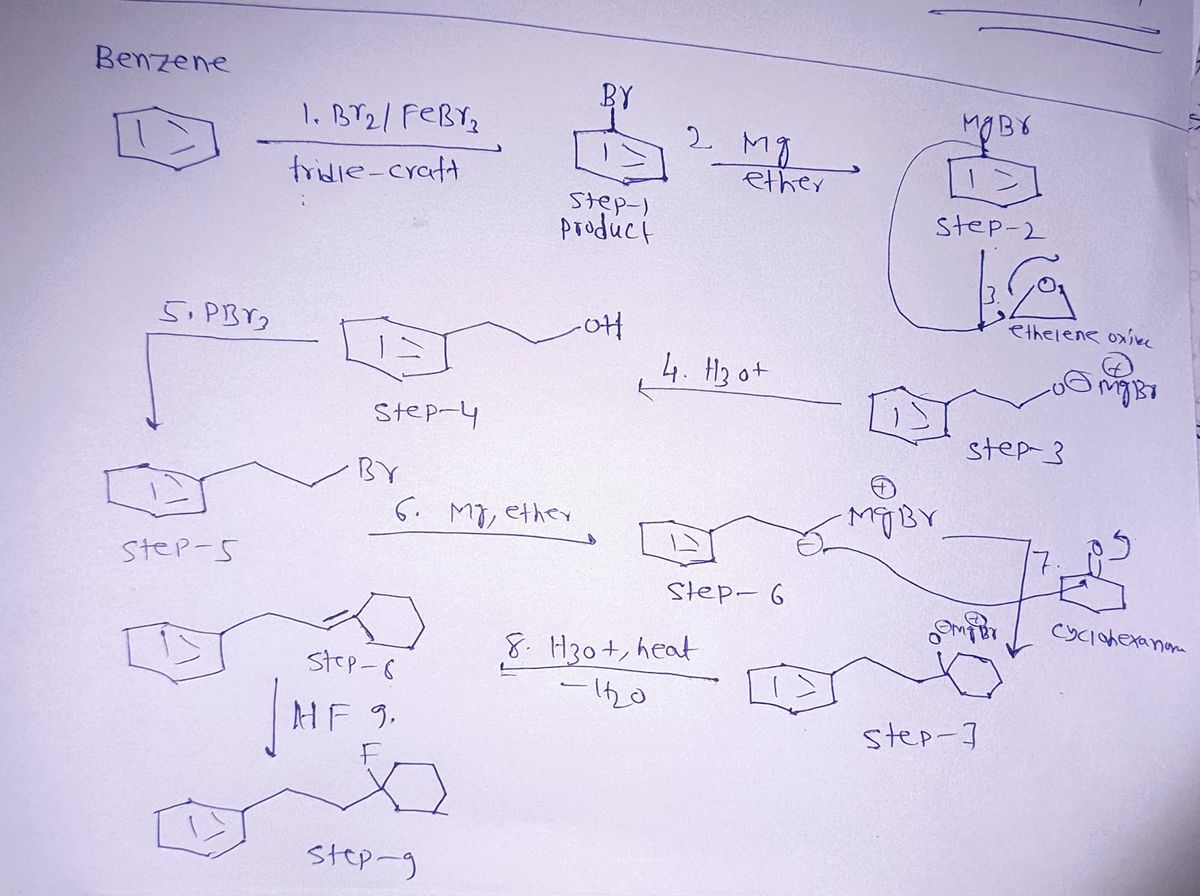 Benzene
1. Br2/ FeBr3
tridle-craft
Br
step-1
product
2 Mg
ether
MgBr
step-2
3.
O
ethelene oxide
5. PBr3
OH
step-4
4. H3O+
O⊖ ⊕MgBr
step-3
Br
step-5
6. Mg, ether
⊕
MgBr
⊖
step-6
7.
O
cyclohexanone
step-6
8. H3O+, heat
-H2O
O⊖MgBr⊕
step-7
HF 9.
F
step-9